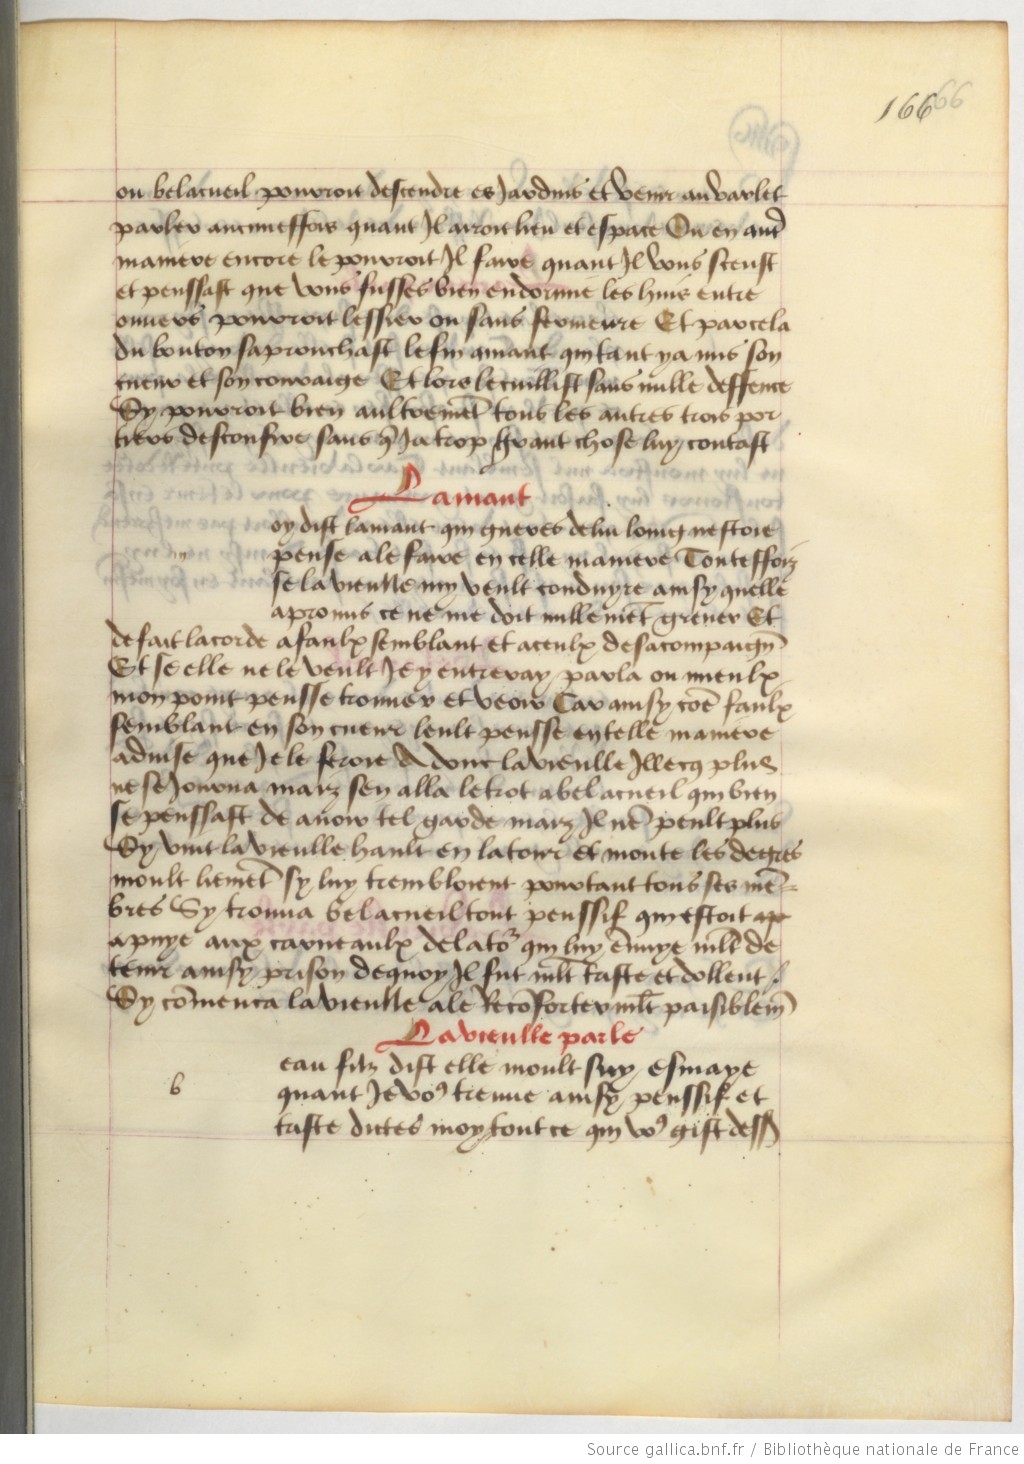 166 66
ou belacueil pourroit descendre es Jardins et venir au varlet
parler aucuneffois quant Il auroit lieu et espace Ou en autre
maniere encore le pourroit Il faire quant Il vous sceust
et penssast que vous fusses bien endormie les huis entre
ouuers pourroit lessier ou sans fermeure Et par cela
du bouton saprouchast le fin amant qui tant y a mis son
cueur et son couraige Et lors le cuillist sans nulle deffence
Sy pourroit bien aultremēt tous les autres trois por
tiers desconfire sans q̄ Ja trop grant chose luy contast
Lamant
oy dist lamant qui gueres de luy loing nestoie
pense a le faire en celle maniere Touteffoiz
se la vieulle my veult conduyre ainsy quelle
a promis ce ne me doit nullemēt greuer Et
de fait lacorde a faulx semblant et a ceulx de sa compaign̄
Et se elle ne le veult Je y entreray par la ou mieulx
mon point pensse trouuer et veoir Car ainsy cōe faulx
semblant en son cueur leult pensse en telle maniere
aduise que Je le feroie Adonc la vieulle Illecq̄ plus
ne seiourna marz sen alla le trot a bel acueil qui bien
se penssast de auoir tel garde marz Il nē peult plus
Sy vint la vieulle hault en la tour et monte les degres
moult liemēt sy luy trembloient pourtant tous ses mē=
bres Sy trouua bel acueil tout penssif qui estoit ap
apuye aux carneaulx de la to² qui luy ēnuye mlt̄ de
tenir ainsy prison de quoy Il fut mlt̄ triste et dollent /
Sy cōmenca la vieulle a le Recōforter mlt̄ paisiblem̄
La vieulle parle
eau filz dist elle moult suy esmaye
b
quant Je vo⁹ treuue ainsy penssif et
triste dictes moy tout ce qui vo⁹ gist dess
Source gallica.bnf.fr / Bibliothèque nationale de France